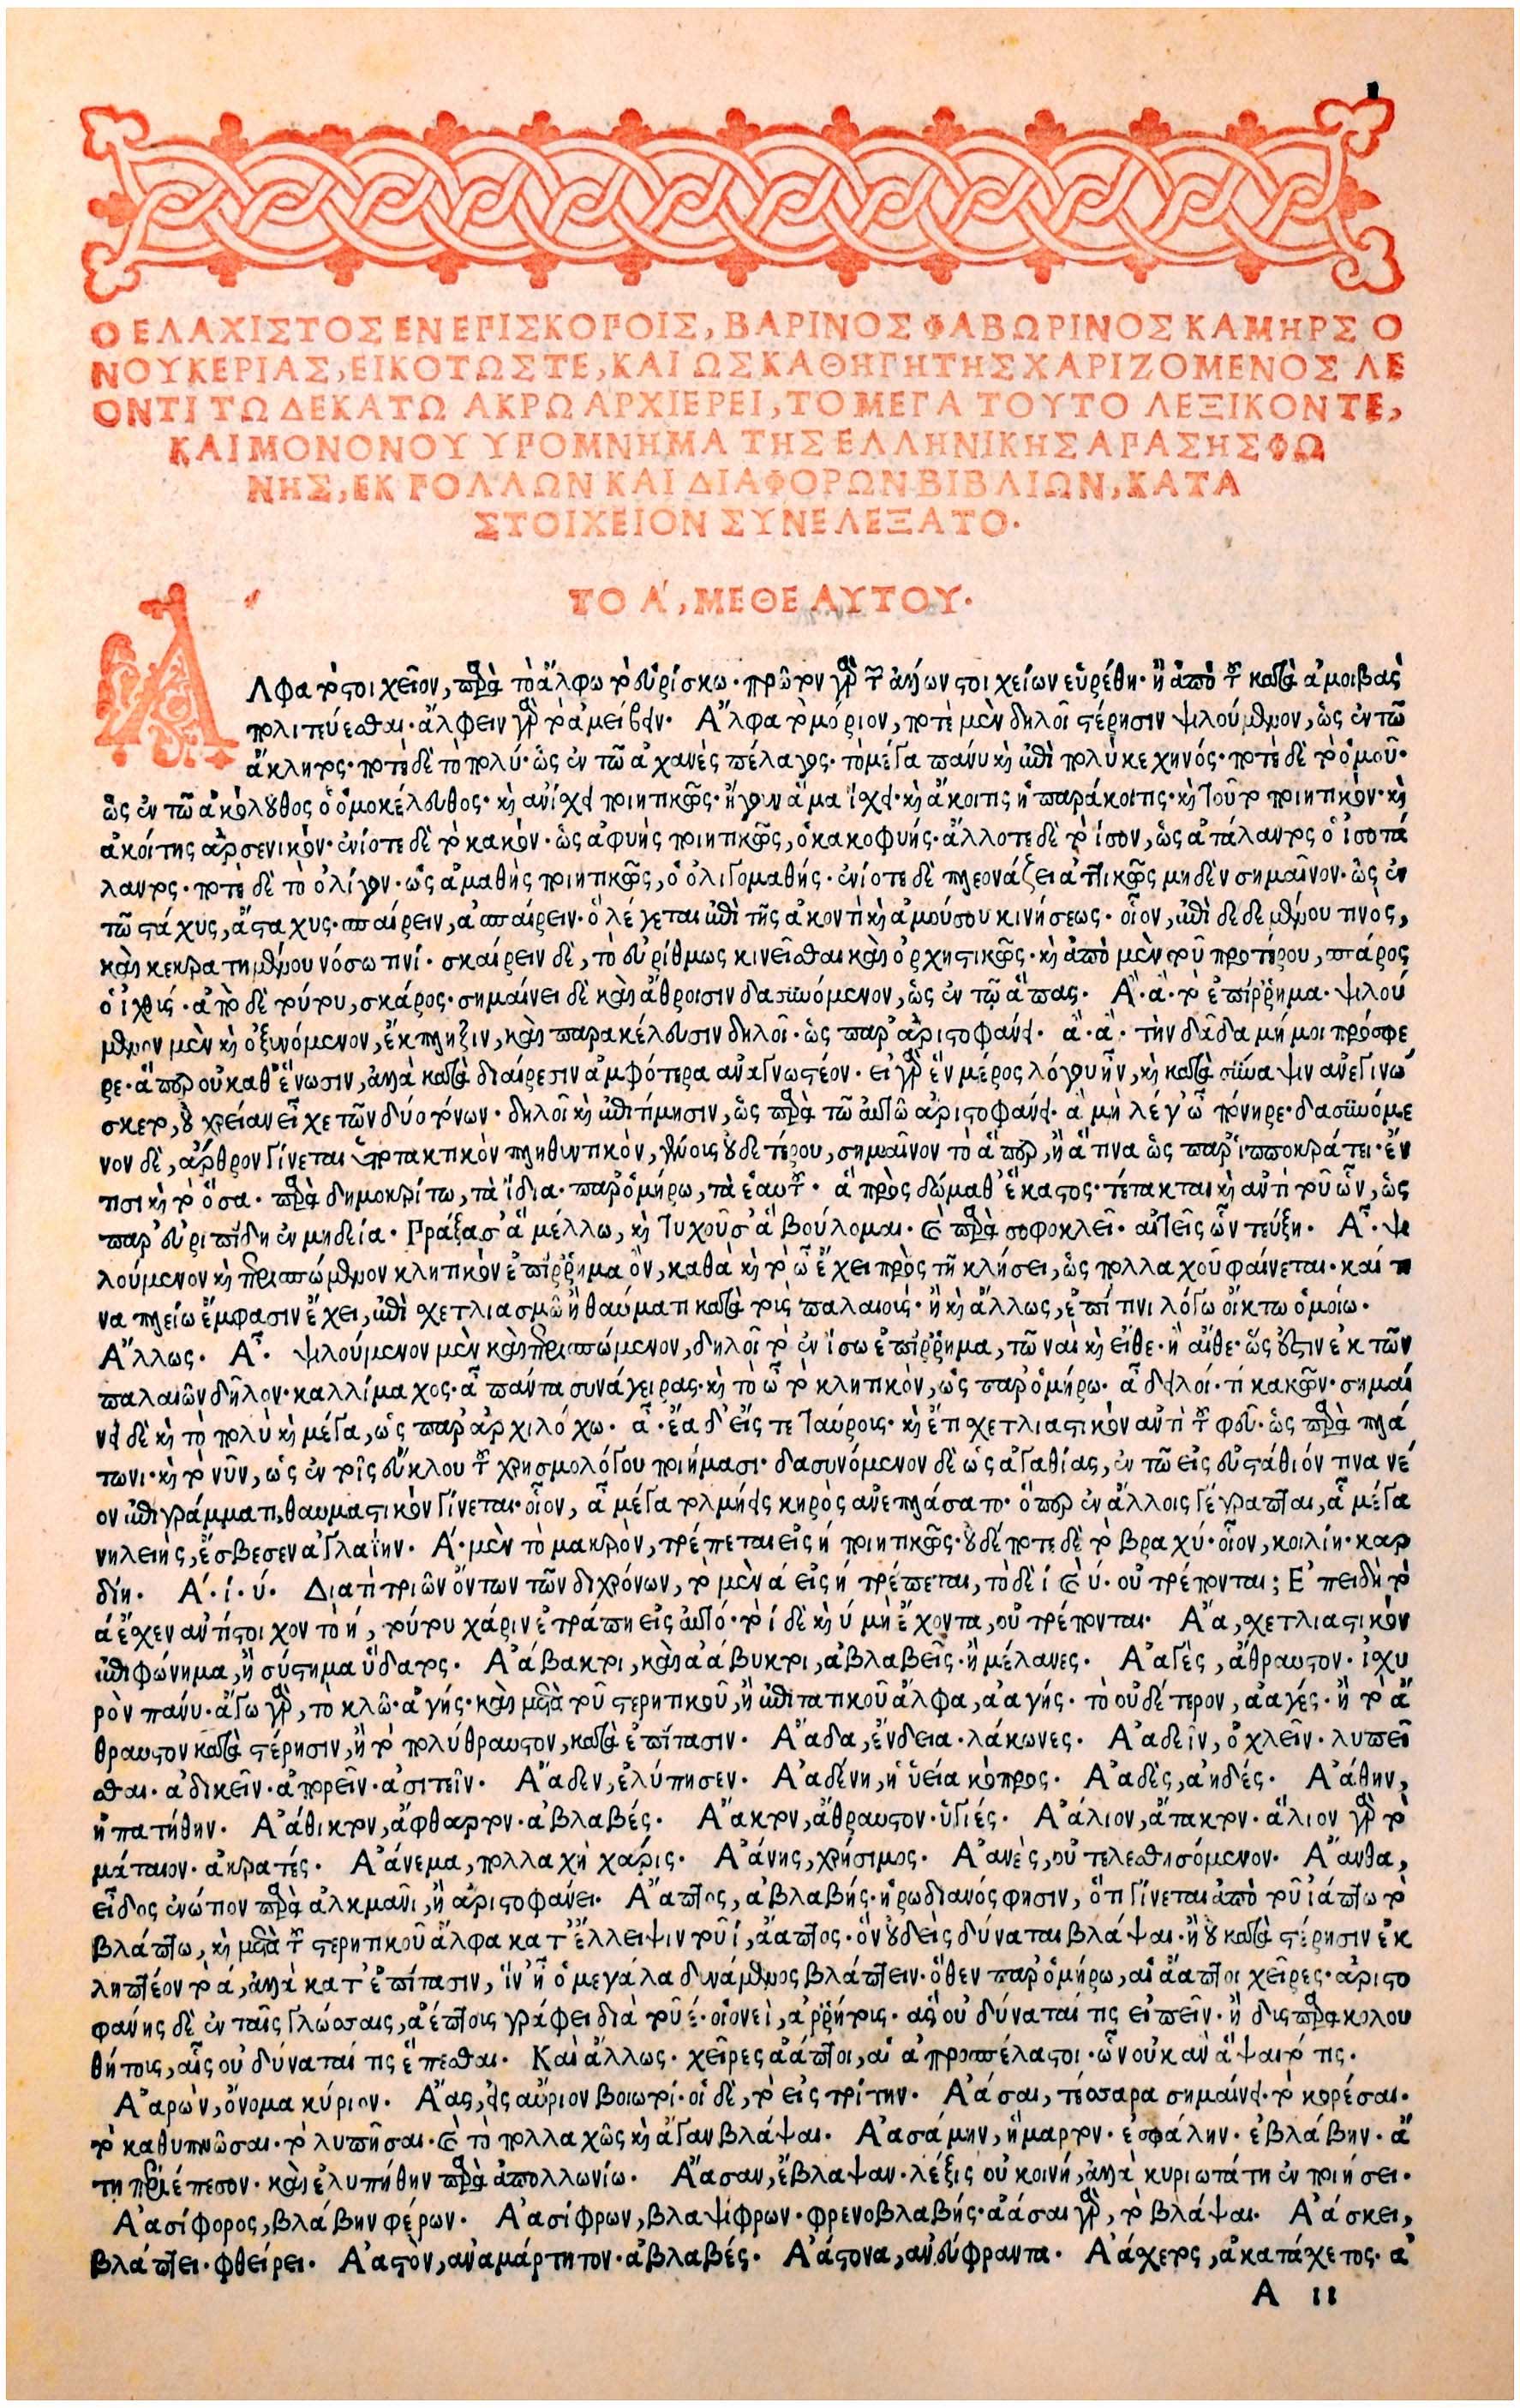 Ο ΕΛΑΧΙΣΤΟΣ ΕΝ ΕΠΙΣΚΟΠΟΙΣ, ΒΑΡΙΝΟΣ ΦΑΒΩΡΙΝΟΣ ΚΑΜΗΡΣ Ο
ΝΟΥΚΕΡΙΑΣ, ΕΙΚΟΤΩΣ ΤΕ, ΚΑΙ ΩΣ ΚΑΘΗΓΗΤΗΣ ΧΑΡΙΖΟΜΕΝΟΣ ΛΕ
ΟΝΤΙ ΤΩ ΔΕΚΑΤΩ ΑΚΡΩ ΑΡΧΙΕΡΕΙ, ΤΟ ΜΕΓΑ ΤΟΥΤΟ ΛΕΞΙΚΟΝ ΤΕ,
ΚΑΙ ΜΟΝΟΝΟΥ ΥΠΟΜΝΗΜΑ ΤΗΣ ΕΛΛΗΝΙΚΗΣ ΑΠΑΣΗΣ ΦΩ
ΝΗΣ, ΕΚ ΠΟΛΛΩΝ ΚΑΙ ΔΙΑΦΟΡΩΝ ΒΙΒΛΙΩΝ, ΚΑΤΑ
ΣΤΟΙΧΕΙΟΝ ΣΥΝΕΛΕΞΑΤΟ·
ΤΟ Α΄, ΜΕΘ ΕΑΥΤΟΥ·
ΑΛφα τὸ στοιχεῖον, παρὰ τὸ ἄλφω τὸ εὑρίσκω· πρῶτον γὰρ τῶν ἄλλων στοιχείων εὑρέθη· ἢ ἀπὸ τοῦ κατὰ ἀμοιβὰς
πολιτεύεσθαι· ἄλφειν γὰρ τὸ ἀμείβειν· Ἄλφα τὸ μόριον, ποτὲ μὲν δηλοῖ στέρησιν ψιλούμενον, ὡς ἐν τῶ
ἄκληρος· ποτὲ δὲ τὸ πολύ· ὡς ἐν τῶ ἀχανὲς πέλαγος· τὸ μέγα πάνυ καὶ ἐπὶ πολὺ κεχηνός· ποτὲ δὲ τὸ ὁμοῦ·
ὡς ἐν τῶ ἀκόλουθος ὁ ὁμοκέλευθος· καὶ ἀνίαχοι ποιητικῶς· ἤγουν ἅμα ἰαχοι· καὶ ἄκοιτις ἡ παράκοιτις· καὶ τοῦτο ποιητικόν· καὶ
ἀκοίτης ἀρσενικόν· ἐνίοτε δὲ τὸ κακόν· ὡς ἀφυὴς ποιητικῶς, ὁ κακοφυής· ἄλλοτε δὲ τὸ ἴσον, ὡς ἀτάλαντος ὁ ἰσοτά
λαντος· ποτὲ δὲ τὸ ὀλίγον· ὡς ἀμαθὴς ποιητικῶς, ὁ ὀλιγομαθής· ἐνίοτε δὲ πλεονάζει ἀττικῶς μηδὲν σημαῖνον· ὡς ἐν
τῶ στάχυς, ἄσταχυς· σπαίρειν, ἀσπαίρειν· ὃ λέγεται ἐπὶ τῆς ἀκοντὶ καὶ ἀμούσου κινήσεως· οἷον, ἐπὶ δεδεμένου τινὸς,
καὶ κεκρατημένου νόσω τινί· σκαίρειν δὲ, τὸ εὐρίθμως κινεῖσθαι καὶ ὀρχηστικῶς· καὶ ἀπὸ μὲν τοῦ προτέρου, σπάρος
ὁ ἰχθύς· ἀπὸ δὲ τούτου, σκάρος· σημαίνει δὲ καὶ ἄθροισιν δασυνόμενον, ὡς ἐν τῷ ἅπας· Ἄ·ἄ· τὸ ἐπίρρημα· ψιλού
μενον μὲν καὶ ὀξυνόμενον, ἔκπληξιν, καὶ παρακέλευσιν δηλοῖ· ὡς παρ' ἀριστοφάνει· ἄ·ἄ· τὴν δᾶδα μή μοι πρόσφε
ρε· ἅπερ οὐ καθ' ἕνωσιν, ἀλλὰ κατὰ διαίρεσιν ἀμφότερα ἀναγνωστέον· εἰ γὰρ ἓν μέρος λόγου ἦν, καὶ κατὰ σύναψιν ἀνεγινώ
σκετο, οὐ χρείαν εἶχε τῶν δύο τόνων· δηλοῖ καὶ ἐπιτίμησιν, ὡς παρὰ τῶ αὐτῶ ἀριστοφάνει· ἃ μὴ λέγ' ὦ πόνηρε· δασυνόμε
νον δὲ, ἄρθρον γίνεται ὑποτακτικὸν πληθυντικὸν, γένους οὐδετέρου, σημαῖνον τὸ ἅπερ, ἢ ἅτινα ὡς παρ' ἱπποκράτει· ἔν
τισι καὶ τὸ ὅσα· παρὰ δημοκρίτω, τὰ ἴδια· παρ' ὁμήρω, τὰ ἑαυτοῦ· ἃ πρὸς δώμαθ' ἕκαστος· τέτακται καὶ ἀντὶ τοῦ ὧν, ὡς
παρ' εὐριπίδη ἐν μηδεία· Πράξασ' ἃ μέλλω, καὶ τυχοῦσ' ἃ βούλομαι· καὶ παρὰ σοφοκλεῖ· αἰτεῖς ὧν τεύξη· Ἆ· ψι
λούμενον καὶ περισπώμενον κλητικὸν ἐπίρρημα ὂν, καθὰ καὶ τὸ ὦ ἔχει πρὸς τῆ κλήσει, ὡς πολλαχοῦ φαίνεται· καί τι
να πλείω ἔμφασιν ἔχει, ἐπὶ σχετλιασμῶ ἢ θαύματι κατὰ τοὺς παλαιούς· ἢ καὶ ἄλλως, ἐπί τινι λόγω οἴκτω ὁμοίω·
Ἄλλως· Ἆ· ψιλούμενον μὲν καὶ περισπώμενον, δηλοῖ τὸ ἐν ἴσω ἐπίρρημα, τῶ ναὶ καὶ εἴθε· ἢ αἴθε· ὥς ἐστιν ἐκ τῶν
παλαιῶν δῆλον· καλλίμαχος· ἆ πάντα συνάγειρας· καὶ τὸ ὦ τὸ κλητικὸν, ὡς παρ' ὁμήρω· ἆ δειλοί· τί κακῶν· σημαί
νει δὲ καὶ τὸ πολὺ καὶ μέγα, ὡς παρ' ἀρχιλόχω· ἆ· ἔα δ' εἷς τε ταύροις· καὶ ἔτι σχετλιαστικὸν ἀντὶ τοῦ φοῦ· ὡς παρὰ πλά
τωνι· καὶ τὸ νῦν, ὡς ἐν τοῖς εὔκλου τοῦ χρησμολόγου ποιήμασι· δασυνόμενον δὲ ὡς ἀγαθίας, ἐν τῶ εἰς εὐστάθιόν τινα νέ
ον ἐπιγράμματι, θαυμαστικὸν γίνεται· οἷον, ἇ μέγα τολμήεις κηρὸς ἀνεπλάσατο· ὅπερ ἐν ἄλλοις γέγραπται, ἆ μέγα
νηλειὴς, ἔσβεσεν ἀγλαΐην· Ά· μὲν τὸ μακρὸν, τρέπεται εἰς ή ποιητικῶς· οὐδέποτε δὲ τὸ βραχύ· οἷον, κοιλίη· καρ
δίη· Ά·ί·ύ· Διατί τριῶν ὄντων τῶν διχρόνων, τὸ μὲν ά εἰς ή τρέπεται, τὸ δὲ ί καὶ ύ· οὐ τρέπονται; Ἐπειδὴ τὸ
ά ἔχεν ἀντίστοιχον τὸ ή, τούτου χάριν ἐτράπη εἰς αὐτό· τὸ ί δὲ καὶ ύ μὴ ἔχοντα, οὐ τρέπονται· Ἄα, σχετλιαστικὸν
ἐπιφώνημα, ἢ σύστημα ὕδατος· Ἀάβακτοι, καὶ ἀάβυκτοι, ἀβλαβεῖς· ἢ μέλανες· Ἀαγὲς, ἄθραυστον· ἰσχυ
ρὸν πάνυ· ἄγω γὰρ, τὸ κλῶ· ἀγής· καὶ μετὰ τοῦ στερητικοῦ, ἢ ἐπιτατικοῦ ἄλφα, ἀαγής· τὸ οὐδέτερον, ἀαγές· ἢ τὸ ἄ
θραυστον κατὰ στέρησιν, ἢ τὸ πολύθραυστον, κατὰ ἐπίτασιν· Ἄαδα, ἔνδεια· λάκωνες· Ἀαδεῖν, ὀχλεῖν· λυπεῖ
σθαι· ἀδικεῖν· ἀπορεῖν· ἀσιτεῖν· Ἄαδεν, ἐλύπησεν· Ἀαδένη, ἡ ὑεία κόπρος· Ἀαδὲς, ἀηδές· Ἀάθην,
ἠπατήθην· Ἀάθικτον, ἄφθαρτον· ἀβλαβές· Ἄακτον, ἄθραυστον· ὑγιές· Ἀάλιον, ἄτακτον· ἅλιον γὰρ τὸ
μάταιον· ἀκρατές· Ἀάνεμα, πολλαχὴ χάρις· Ἀάνης, χρήσιμος· Ἀανὲς, οὐ τελεσθησόμενον· Ἄανθα,
εἶδος ἐνώπον παρὰ ἀλκμᾶνι, ἢ ἀριστοφάνει· Ἄαπτος, ἀβλαβής· ἡρωδιανός φησιν, ὅτι γίνεται ἀπὸ τοῦ ἰάπτω τὸ
βλάπτω, καὶ μετὰ τοῦ στερητικοῦ ἄλφα κατ' ἔλλειψιν τοῦ ί, ἄαπτος· ὃν οὐδεὶς δύναται βλάψαι· ἢ οὐ κατὰ στέρησιν ἐκ
ληπτέον τὸ ά, ἀλλὰ κατ' ἐπίτασιν, ἵν' ἦ ὁ μεγάλα δυνάμενος βλάπτειν· ὅθεν παρ' ὁμήρω, αἱ ἄαπτοι χεῖρες· ἀριστο
φάνης δὲ ἐν ταῖς γλώσσαις, ἀέπτοις γράφει διὰ τοῦ έ· οἱονεὶ, ἀρρήτοις· ἃς οὐ δύναταί τις εἰπεῖν· ἢ δυσπαρακολου
θήτοις, αἷς οὐ δύναταί τις ἕπεσθαι· Καὶ ἄλλως· χεῖρες ἄαπτοι, αἱ ἀπροσπέλαστοι· ὧν οὐκ ἂν ἅψαιτό τις·
Ἀαρὼν, ὄνομα κύριον· Ἄας, εἰς αὔριον βοιωτοί· οἱ δὲ, τὸ εἰς τρίτην· Ἀάσαι, τέσσαρα σημαίνει· τὸ κορέσαι·
τὸ καθυπνῶσαι· τὸ λυπῆσαι· καὶ τὸ πολλαχῶς καὶ ἄγαν βλάψαι· Ἀασάμην, ἥμαρτον· ἐσφάλην· ἐβλάβην· ἄ
τη περιέπεσον· καὶ ἐλυπήθην παρὰ ἀπολλωνίω· Ἄασαν, ἔβλαψαν· λέξις οὐ κοινή, ἀλλὰ κυριωτάτη ἐν ποιήσει·
Ἀασίφορος, βλάβην φέρων· Ἀασίφρων, βλαψίφρων· φρενοβλαβής· ἀάσαι γὰρ, τὸ βλάψαι· Ἀάσκει,
βλάπτει· φθείρει· Ἀαστὸν, ἀναμάρτητον· ἀβλαβές· Ἀάστονα, ἀνεύφραντα· Ἀάσχετος, ἀκατάσχετος· ἀ
Α ιι